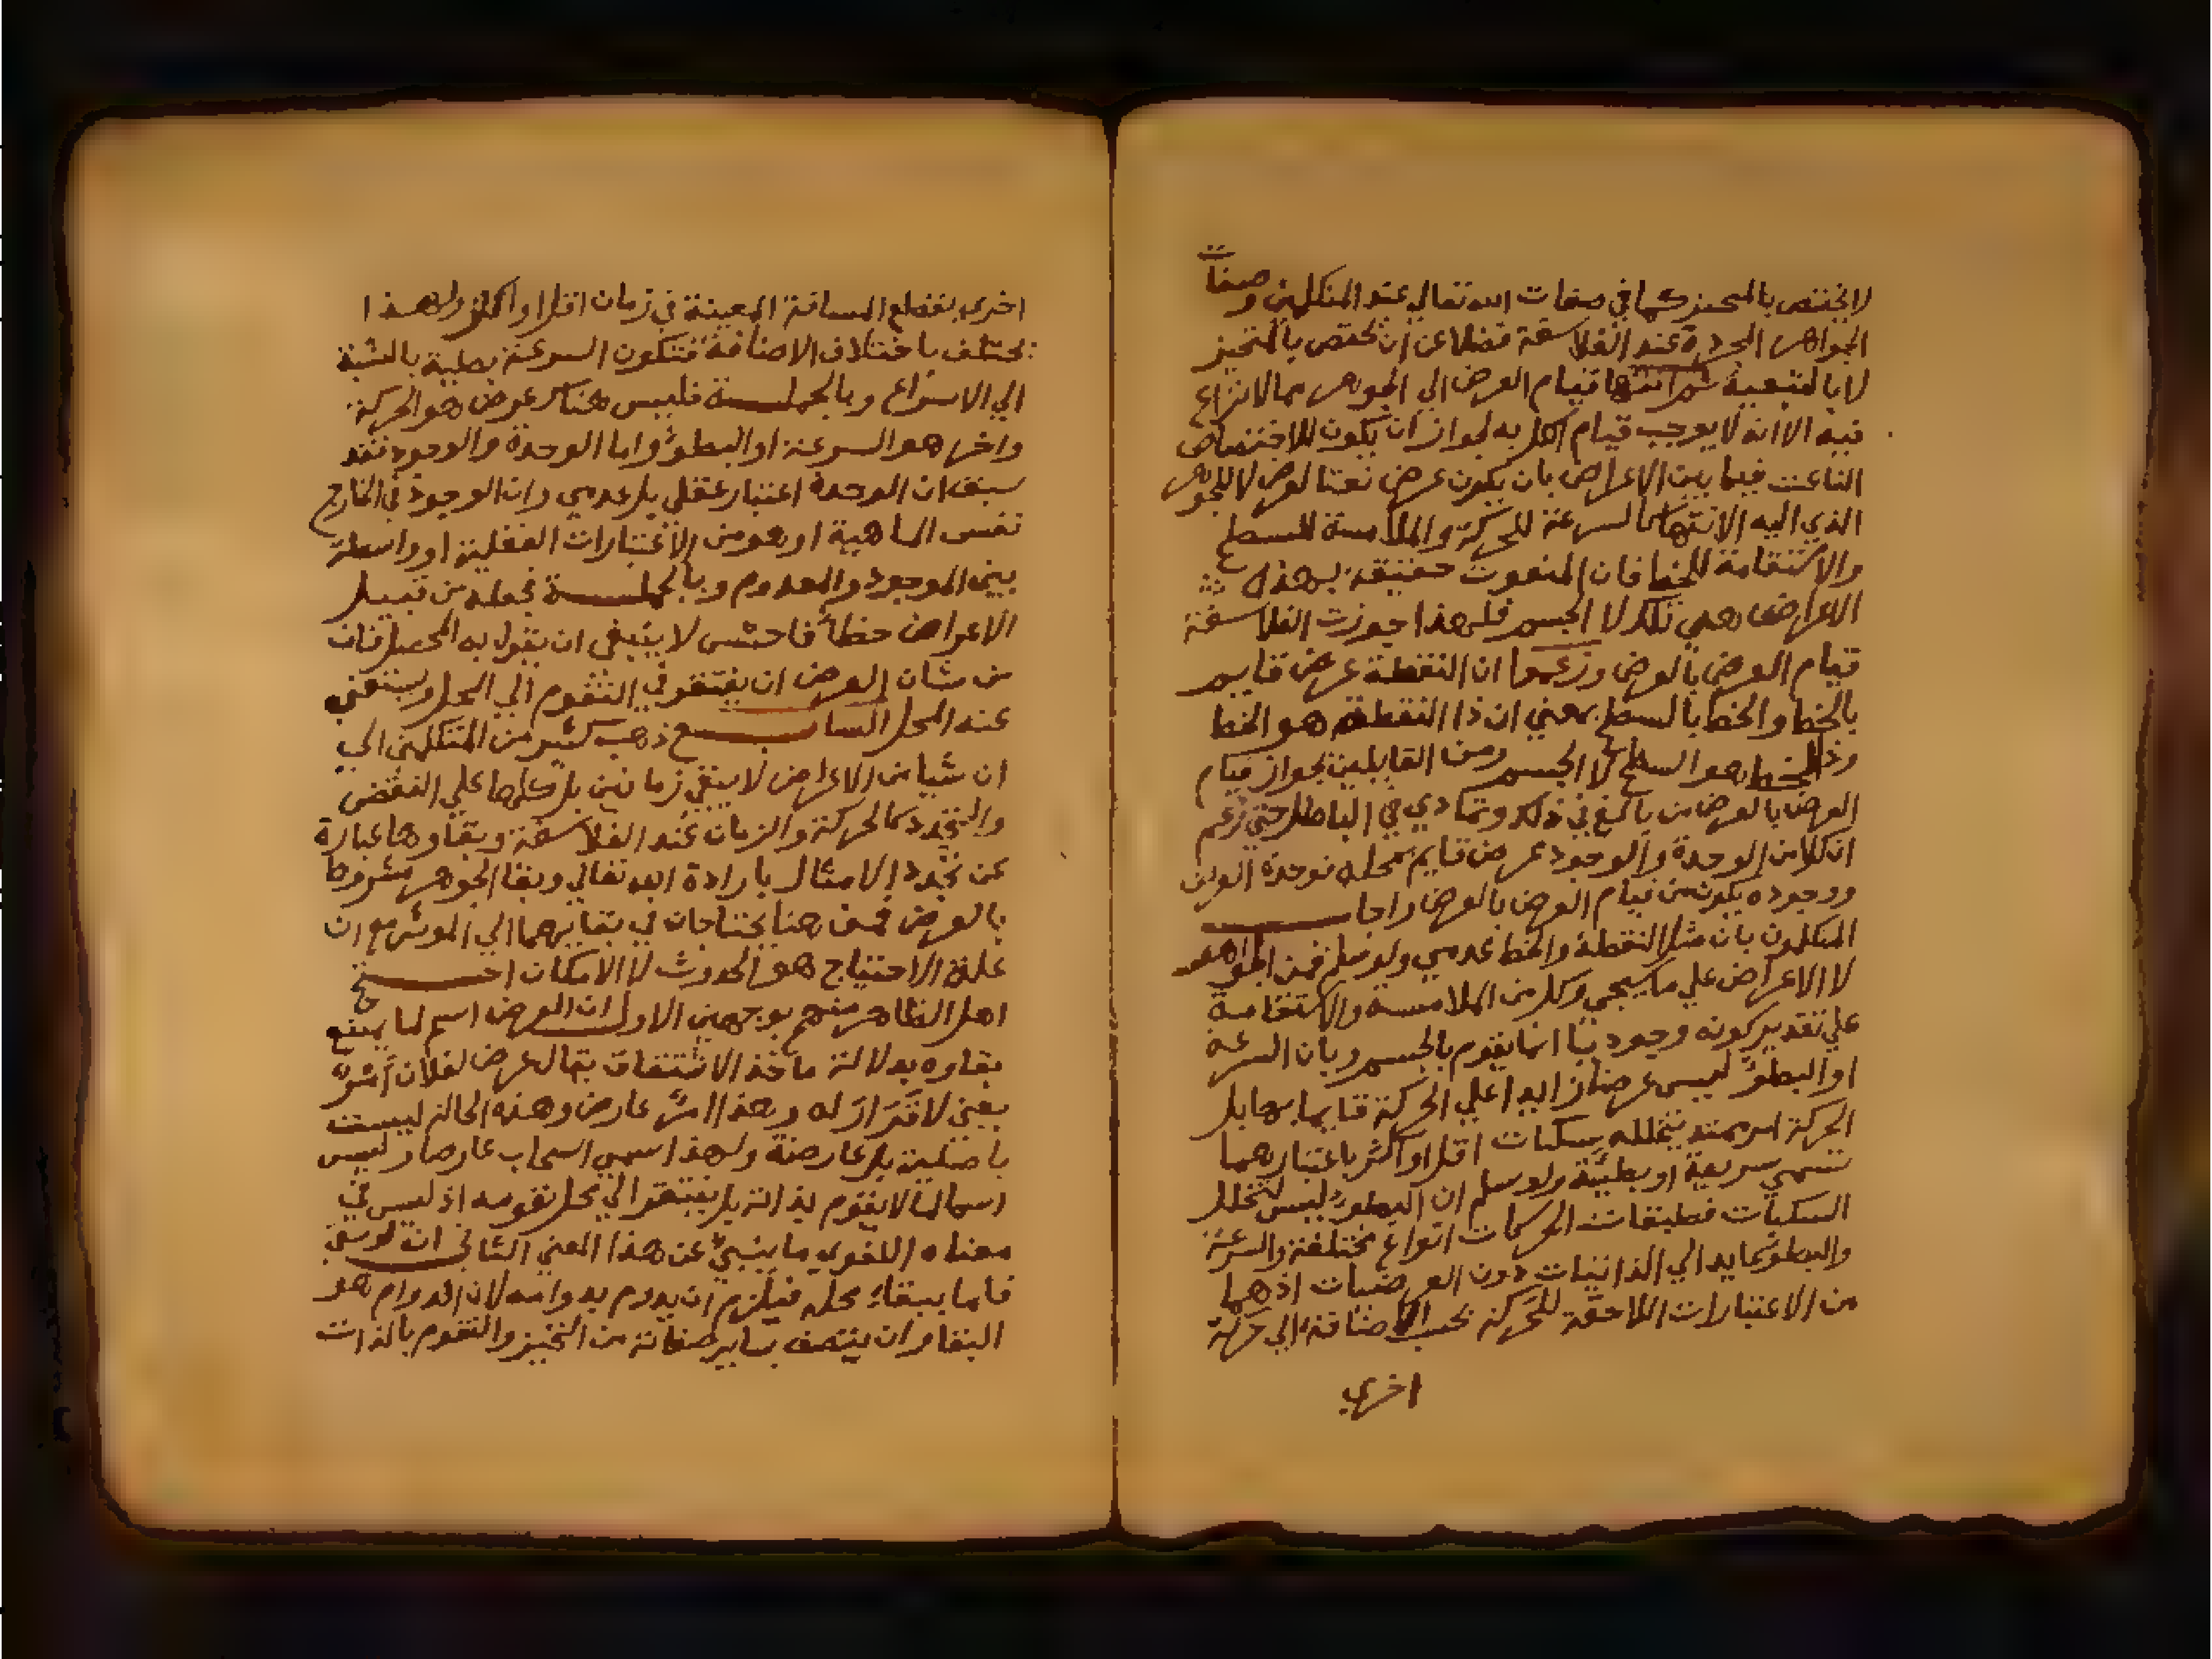 لا يختص بالمتحيز كما في صفات الله تعالي عند المتكلمين وصفات
الجواهر المجردة عند الفلاسفة فضلا عن ان يختص بالمتحيز
لا بالتبعية ثم انتها قيام العرض الي الجوهر مما لا نزاع
فيه الا انه لا يوجب قيام الكل به لجواز ان يكون للاختصاص
الناعت فيما بين الاعراض بان يكون عرض نعتا لعرض لا للجوهر
الذي اليه الانتها كالسرعة للحركة والملاسة للسطح
والاستقامة للخط فان المنعوت حقيقة بهذه
الاعراض هي تلك لا الجسم فلهذا جوزت الفلاسفة
قيام العرض بالعرض وزعموا ان النقطة عرض قايم
بالخط والخط بالسطح بمعني ان ذا النقطة هو الخط
وذا الخط هو السطح لا الجسم ومن القايلين بجواز قيام
العرض بالعرض من بالغ في ذلك وتمادي في الباطل حتي زعم
ان كلا من الوحدة والوجود عرض قايم بمحله فوحدة العرض
ووجوده يكون من قيام العرض بالعرض واجاب
المتكلمون بان مثل النقطة والخط عدمي ولو سلم فمن الجواهر
لا الاعراض علي ما سيجي وكل من الملامسة والاستقامة
علي تقدير كونه وجوديا انما يقوم بالجسم وبان السرعة
او البطؤ ليس عرضا زايدا علي الحركة قايما بها بل
الحركة امر ممتد يتخلله سكنات اقل او اكثر باعتبارهما
تسمي سريعة او بطيئة ولو سلم ان البطؤ ليس لتخلل
السكنات فطبقات الحركات انواع مختلفة والسرعة
والبطؤ عايد الي الذاتيات دون العرضيات اذ هما
من الاعتبارات اللاحقة للحركة بحسب الاضافة الي حركة
اخري
اخري بقطع المسافة المعينة في زمان اقل او اكثر ولهذا
يختلف باختلاف الاضافة فتكون السرعة بطية بالنسبة
الي الاسراع وبالجملة فليس هناك عرض هو الحركة
واخر هو السرعة او البطؤ واما الوحدة والوجود فقد
سبق ان الوحدة اعتبار عقلي بل عدمي وان الوجود في الخارج
نفس الماهية او هو من الاعتبارات العقلية او واسطة
بين الموجود والمعدوم وبالجملة فجعله من قبيل
الاعراض خطأ فاحش لا ينبغي ان يقول به المحصل فان
من شان العرض ان يفتقر في التقوم الي المحل ويستغني
عنه المحل السابع ذهب كثير من المتكلمين الي
ان شيا من الاعراض لا يبقي زمانين بل كلها علي التقضي
والتجدد كالحركة والزمان عند الفلاسفة وبقاوها عبارة
عن تجدد الامثال بارادة الله تعالي وبقا الجوهر مشروط
بالعرض فمن هنا يحتاجان في بقايهما الي الموثر مع ان
علة الاحتياج هو الحدوث لا الامكان احتج
اهل الظاهر منهم بوجهين الاول ان العرض اسم لما يمتنع
بقاوه بدلالة ماخذ الاشتقاق يقال عرض لفلان أمرٌ
بمعني لا قرار له وهذا امرٌ عارض وهذه الحالة ليست
باصلية بل عارضة ولهذا سمي السحاب عارضا وليس
اسما لما لا يقوم بذاته بل يفتقر الي محل يقومه اذ ليس في
معناه اللغوي ما ينبيء عن هذا المعني الثاني انه لو بقي
فاما ببقاء محله فيلزم ان يدوم بدوامه لان الدوام هو
البقا وان يتصف بساير صفاته من التحيز والتقوم بالذات